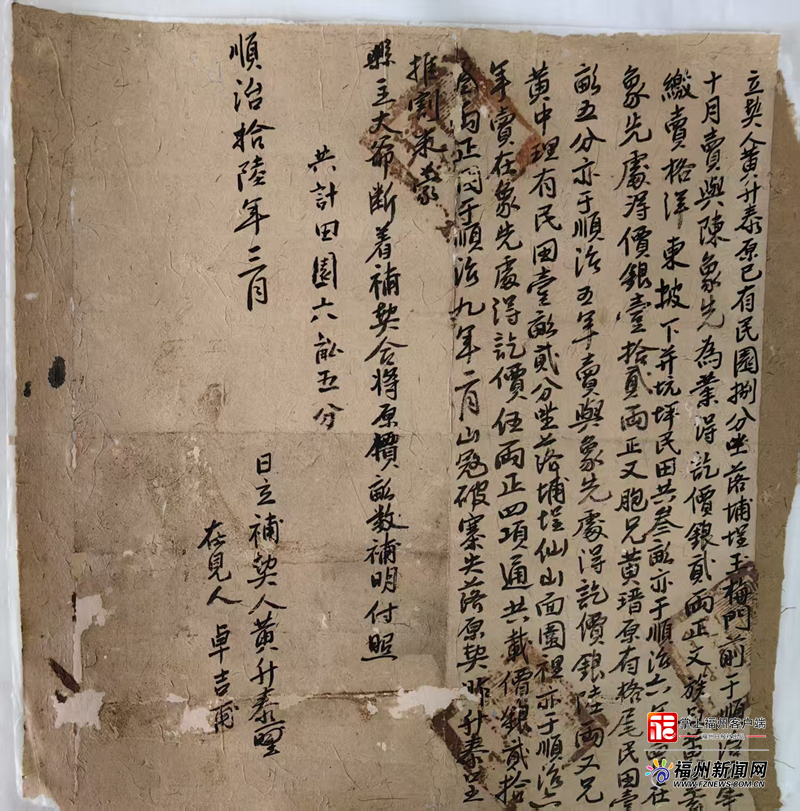 立契人黃升泰原已有民園捌分坐落埔埕玉梅門前于順治
十月賣與陳象先為業得訖價銀貳兩正又族兄
繳賣格洋東披下并坑坪民田共叁畝亦于順治六年
象先處得價銀壹拾貳兩正又胞兄黃瑨原有格尾民田壹
畝五分亦于順治五年賣與象先處得訖價銀陸兩又兄
黃中理有民田壹畝貳分坐落埔埕仙山面園祖亦于順治六
年賣在象先處得訖價伍兩正四項通共載價銀貳拾
于順治九年二月山寇破寨失落原契昨升泰呈
推割末蒙
縣主大爺斷着補契合將原價畝数補明付照
共計田園六畝五分
順治拾陸年三月
日立補契人黃升泰
在見人 卓吉甫
掌上福州客户端
福州日报社出品
福州新闻网
WWW.FZNEWS.COM.CN